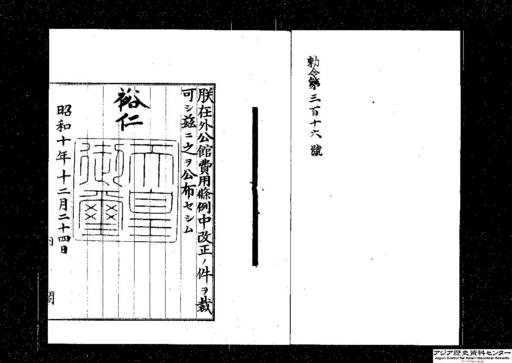 勅令第三百十六號
朕在外公館費用條例中改正ノ件ヲ裁
可シ茲ニ之ヲ公布セシム
裕仁
天皇
御璽
昭和十年十二月二十四日
内閣
アジア歴史資料センター
Japan Center for Asian Historical Records